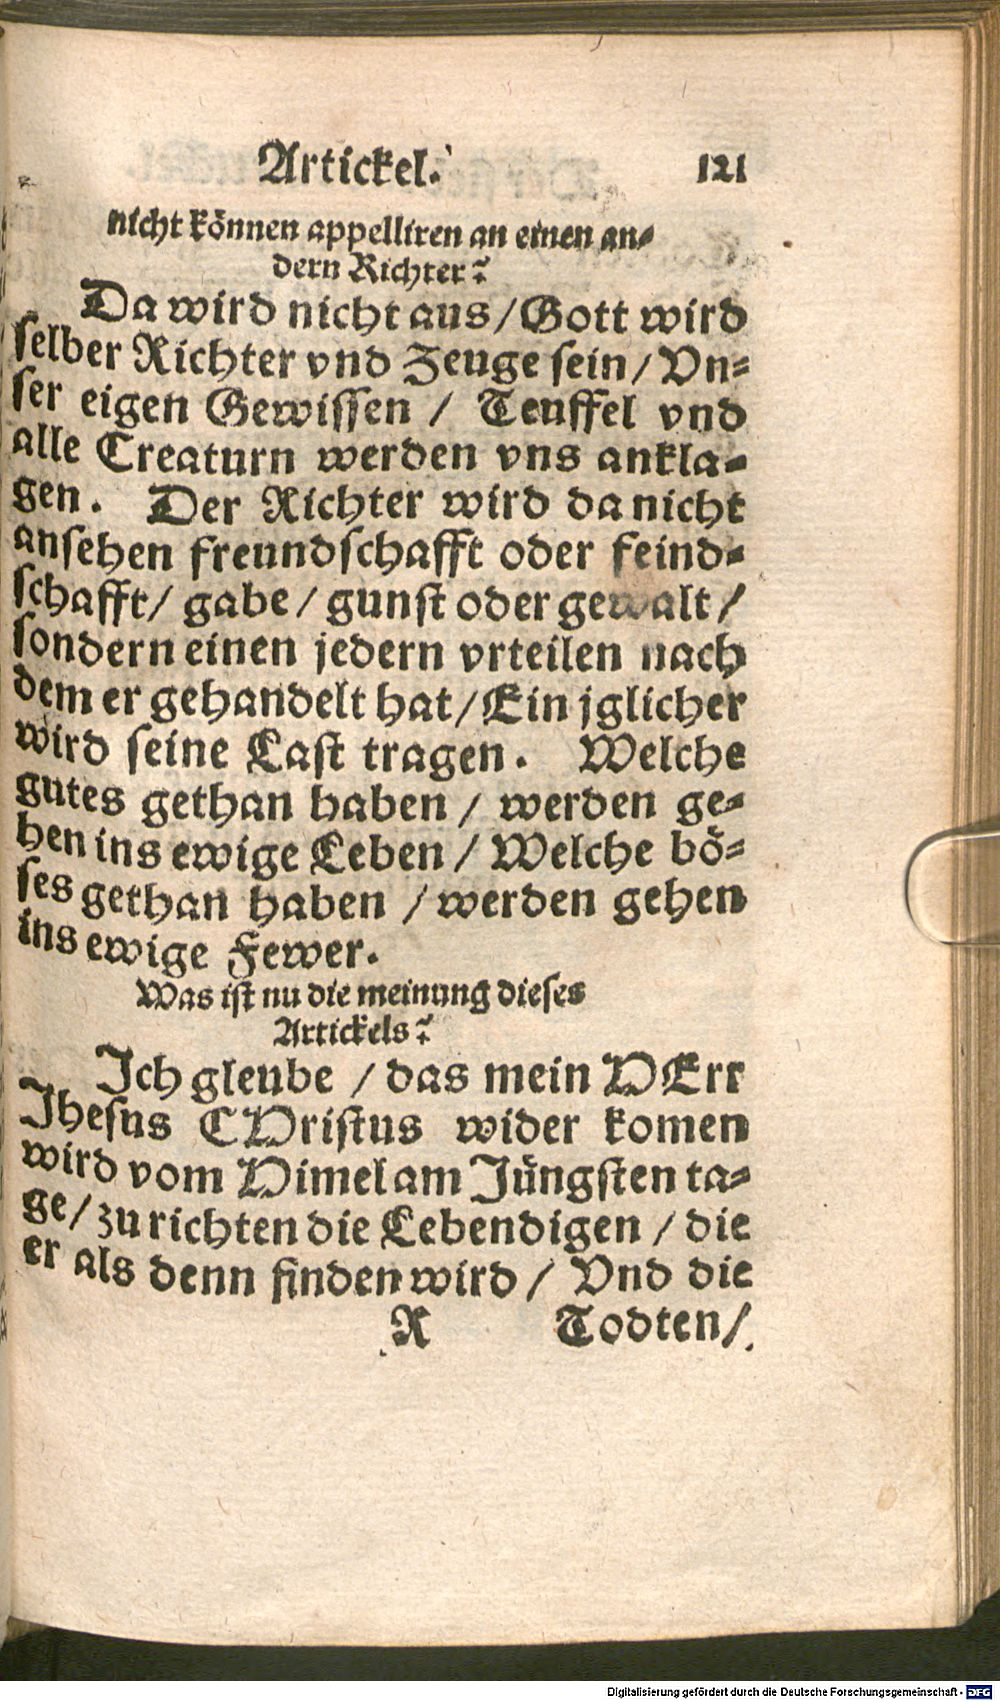 Artickel. 121
nicht können appelliren an einen an-
dern Richter?
Da wird nicht aus/Gott wird
selber Richter vnd Zeuge sein/Vn-
ser eigen Gewissen / Teuffel vnd
alle Creaturn werden vns ankla-
gen. Der Richter wird da nicht
ansehen freundschafft oder feind-
schafft/ gabe/ gunst oder gewalt/
sondern einen jedern vrteilen nach
dem er gehandelt hat/Ein jglicher
wird seine Last tragen. Welche
gutes gethan haben / werden ge-
hen ins ewige Leben / Welche bö-
ses gethan haben /werden gehen
ins ewige Fewer.
Was ist nu die meinung dieses
Artickels?
Ich gleube /das mein HErr
Jhesus CHristus wider komen
wird vom Himel am Jüngsten ta-
ge/zu richten die Lebendigen / die
er als denn finden wird/ Vnd die
R Todten/
Digitalisierung gefördert durch die Deutsche Forschungsgemeinschaft - DFG